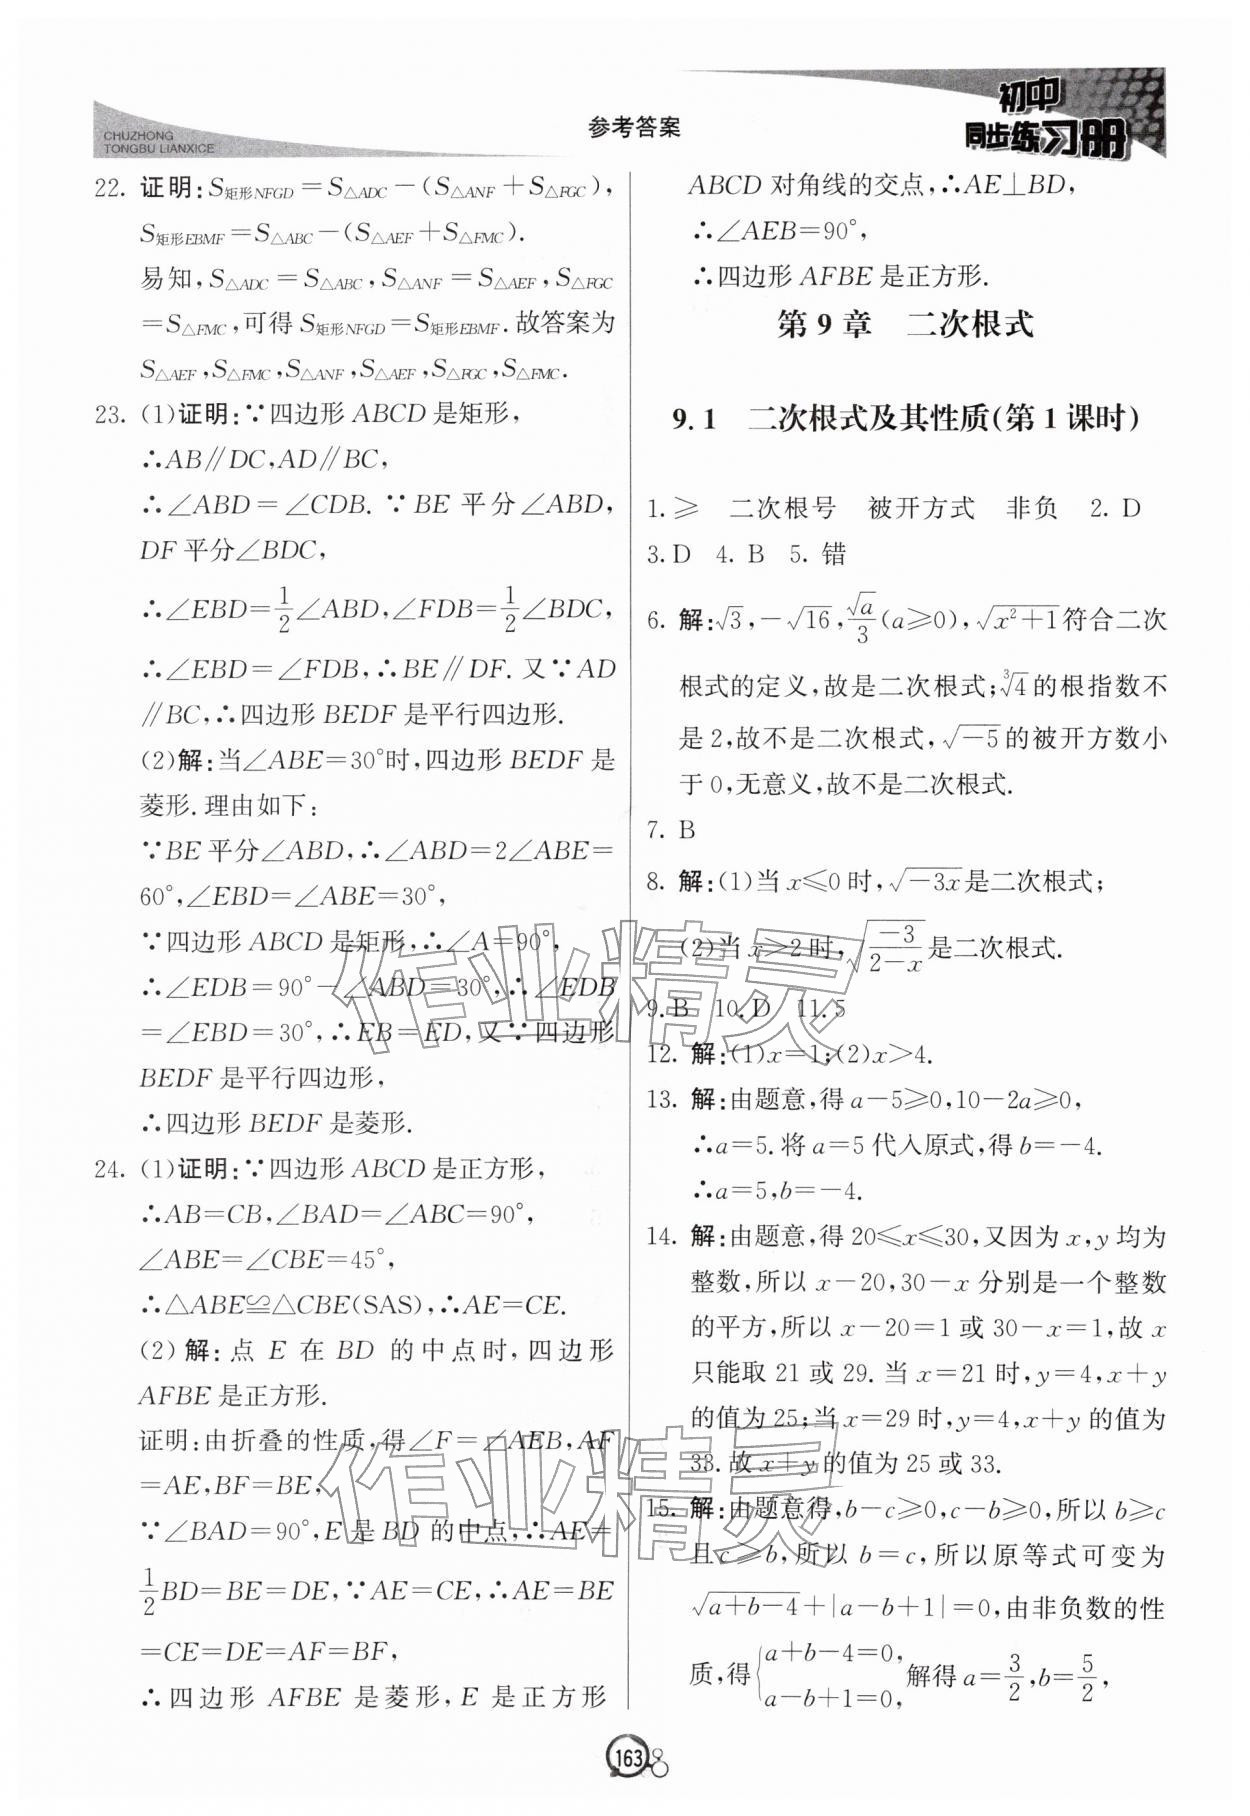 CHUZHONG
TONGBU LIANXICE
参考答案
初中
同步练习册
22. 证明:S矩形NFGD=S△ADC-(S△ANF+S△FGC),
S矩形EBMF=S△ABC-(S△AEF+S△FMC).
易知,S△ADC=S△ABC,S△ANF=S△AEF,S△FGC
=S△FMC,可得S矩形NFGD=S矩形EBMF.故答案为
S△AEF,S△FMC,S△ANF,S△AEF,S△FGC,S△FMC.
23. (1)证明:∵四边形ABCD是矩形,
∴AB∥DC,AD∥BC,
∴∠ABD=∠CDB. ∵BE平分∠ABD,
DF平分∠BDC,
∴∠EBD=1/2∠ABD,∠FDB=1/2∠BDC,
∴∠EBD=∠FDB,∴BE∥DF. 又∵AD
∥BC,∴四边形BEDF是平行四边形.
(2)解:当∠ABE=30°时,四边形BEDF是
菱形.理由如下:
∵BE平分∠ABD,∴∠ABD=2∠ABE=
60°,∠EBD=∠ABE=30°,
∵四边形ABCD是矩形,∴∠A=90°,
∴∠EDB=90°-∠ABD=30°,∴∠EDB
=∠EBD=30°,∴EB=ED,又∵四边形
BEDF是平行四边形,
∴四边形BEDF是菱形.
24. (1)证明:∵四边形ABCD是正方形,
∴AB=CB,∠BAD=∠ABC=90°,
∠ABE=∠CBE=45°,
∴△ABE≌△CBE(SAS),∴AE=CE.
(2)解:点E在BD的中点时,四边形
AFBE是正方形.
证明:由折叠的性质,得∠F=∠AEB,AF
=AE,BF=BE,
∵∠BAD=90°,E是BD的中点,∴AE=
1/2BD=BE=DE,∵AE=CE,∴AE=BE
=CE=DE=AF=BF,
∴四边形AFBE是菱形,E是正方形
ABCD对角线的交点,∴AE⊥BD,
∴∠AEB=90°,
∴四边形AFBE是正方形.
第9章 二次根式
9.1 二次根式及其性质(第1课时)
1.≥ 二次根号 被开方式 非负 2. D
3.D 4. B 5. 错
6. 解:√3,-√16,√a/3(a≥0),√(x²+1)符合二次
根式的定义,故是二次根式;∛4的根指数不
是2,故不是二次根式,√(-5)的被开方数小
于0,无意义,故不是二次根式.
7. B
8. 解:(1)当x≤0时,√(-3x)是二次根式;
(2)当x>2时,√(-3/(2-x))是二次根式.
9.B 10.D 11.5
12. 解:(1)x=1;(2)x>4.
13. 解:由题意,得a-5≥0,10-2a≥0,
∴a=5.将a=5代入原式,得b=-4.
∴a=5,b=-4.
14. 解:由题意,得20≤x≤30,又因为x,y均为
整数,所以x-20,30-x分别是一个整数
的平方,所以x-20=1或30-x=1,故x
只能取21或29.当x=21时,y=4,x+y
的值为25;当x=29时,y=4,x+y的值为
33.故x+y的值为25或33.
15. 解:由题意得,b-c≥0,c-b≥0,所以b≥c
且c≥b,所以b=c,所以原等式可变为
√(a+b-4)+|a-b+1|=0,由非负数的性
质,得{a+b-4=0, a-b+1=0, 解得a=3/2,b=5/2,
163
作业精灵
作业精灵